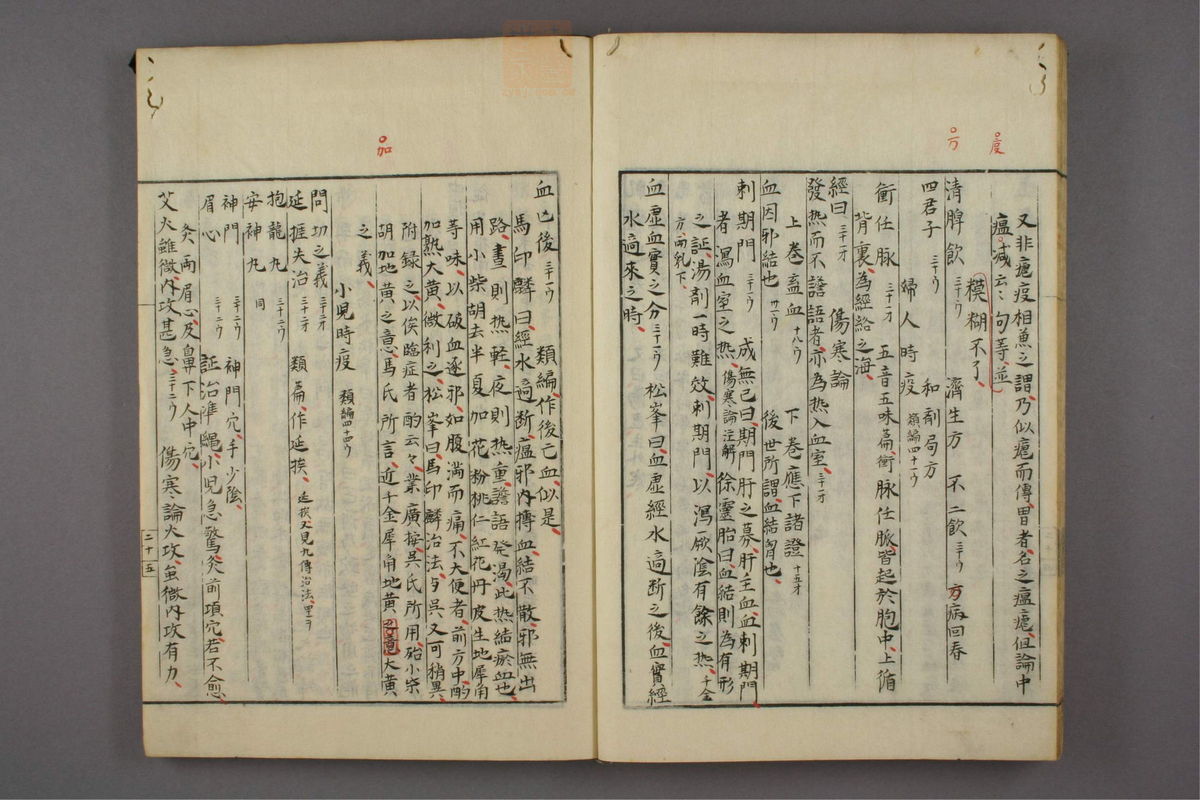 度
方
又非瘧疫相兼之謂、乃似瘧而傳胃者、名之瘟瘧、但論中
瘟減云々句等並
糢糊不了、
清脾飲 三十ウ 濟生方 不二飲 三十ウ 方病回春
四君子 三十ウ 和剤局方
婦人時疫 類編四十一ウ
衝任脉 三十一オ 五音五味篇、衝脉任脈、皆起於胞中、上循
背裏、為經絡之海、
經曰 三十一オ 傷寒論
發热而不譫語者、亦為热入血室、三十一オ
上巻 盍血 十八ウ 下巻應下諸證 十五オ
血因邪結也 卅一ウ 後世所謂、血結胷也、
刺期門 三十一ウ 成無己曰、期門肝之募、肝主血、刺期門
者、瀉血室之热、傷寒論注解 徐靈胎曰、血結則為有形
之証、湯剤一時難效、刺期門、以瀉厥陰有餘之热、千金
方、両乳下、
血虚血實之分 三十一ウ 松峯曰、血虚經水適断之後、血實經
水適来之時、
加
血凶後 三十一ウ 類編、作後亡血、似是、
馬印麟曰、經水適断、瘟邪内搏、血結不散、邪無出
路、晝則热軽、夜則热重、譫語発渇、此热結瘀血也、
用小柴胡去半夏加花粉桃仁紅花丹皮生地犀角
等味、以破血逐邪、如腹満而痛、不大便者、前方中酌
加熟大黄、微利之、松峯曰、馬印麟治法、与呉又可稍異、
附録之、以俟臨症者酌云々、業廣按、呉氏所用、殆小柴
胡加地黄之意、馬氏所言、近千金犀角地黄之意大黄
之義、
小児時疫 類編四十四ウ
問切之義 三十二オ
延捱失治 三十二オ 類篇、作延挨、延挨、又見九傳治法、
抱龍丸 三十二ウ
安神丸 同
神門 三十二ウ 神門穴、手少陰、
眉心 三十二ウ 証治準繩、小児急驚、灸前項穴、若不愈、
灸両眉心、及鼻下人中穴、
艾火雖微、内攻甚急、三十二ウ 傷寒論火攻、虽微内攻有力、
二十五